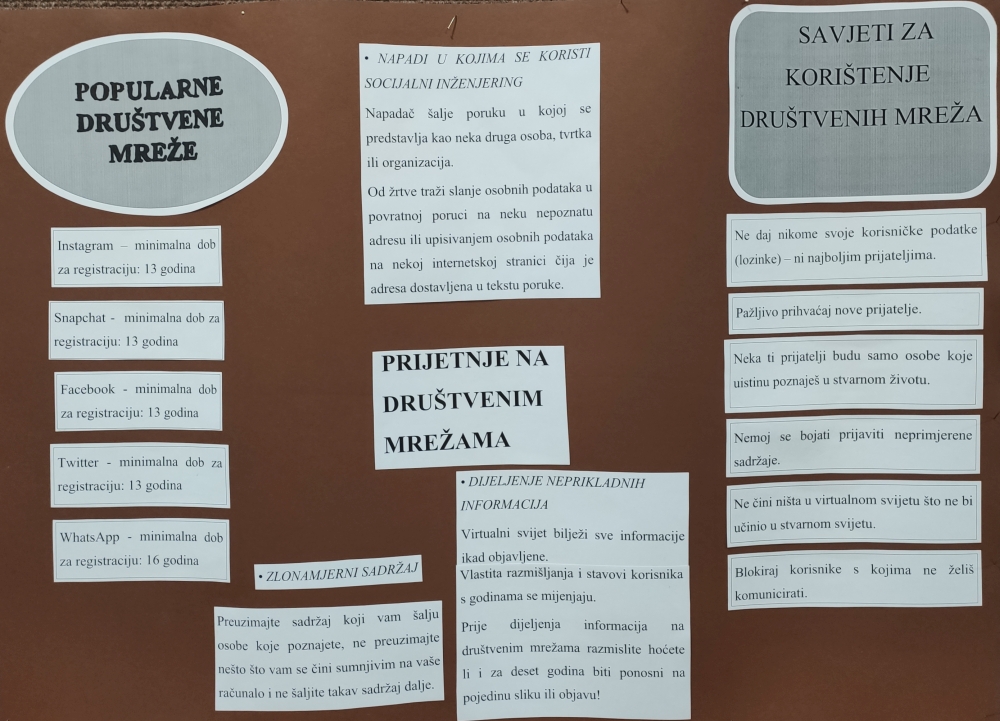 POPULARNE
DRUŠTVENE
MREŽE
Instagram – minimalna dob
za registraciju: 13 godina
Snapchat - minimalna dob za
registraciju: 13 godina
Facebook - minimalna dob
za registraciju: 13 godina
Twitter - minimalna dob za
registraciju: 13 godina
WhatsApp - minimalna dob
za registraciju: 16 godina
• NAPADI U KOJIMA SE KORISTI
SOCIJALNI INŽENJERING
Napadač šalje poruku u kojoj se
predstavlja kao neka druga osoba, tvrtka
ili organizacija.
Od žrtve traži slanje osobnih podataka u
povratnoj poruci na neku nepoznatu
adresu ili upisivanjem osobnih podataka
na nekoj internetskoj stranici čija je
adresa dostavljena u tekstu poruke.
PRIJETNJE NA
DRUŠTVENIM
MREŽAMA
• ZLONAMJERNI SADRŽAJ
Preuzimajte sadržaj koji vam šalju
osobe koje poznajete, ne preuzimajte
nešto što vam se čini sumnjivim na vaše
računalo i ne šaljite takav sadržaj dalje.
• DIJELJENJE NEPRIKLADNIH
INFORMACIJA
Virtualni svijet bilježi sve informacije
ikad objavljene.
Vlastita razmišljanja i stavovi korisnika
s godinama se mijenjaju.
Prije dijeljenja informacija na
društvenim mrežama razmislite hoćete
li i za deset godina biti ponosni na
pojedinu sliku ili objavu!
SAVJETI ZA
KORIŠTENJE
DRUŠTVENIH MREŽA
Ne daj nikome svoje korisničke podatke
(lozinke) – ni najboljim prijateljima.
Pažljivo prihvaćaj nove prijatelje.
Neka ti prijatelji budu samo osobe koje
uistinu poznaješ u stvarnom životu.
Nemoj se bojati prijaviti neprimjerene
sadržaje.
Ne čini ništa u virtualnom svijetu što ne bi
učinio u stvarnom svijetu.
Blokiraj korisnike s kojima ne želiš
komunicirati.